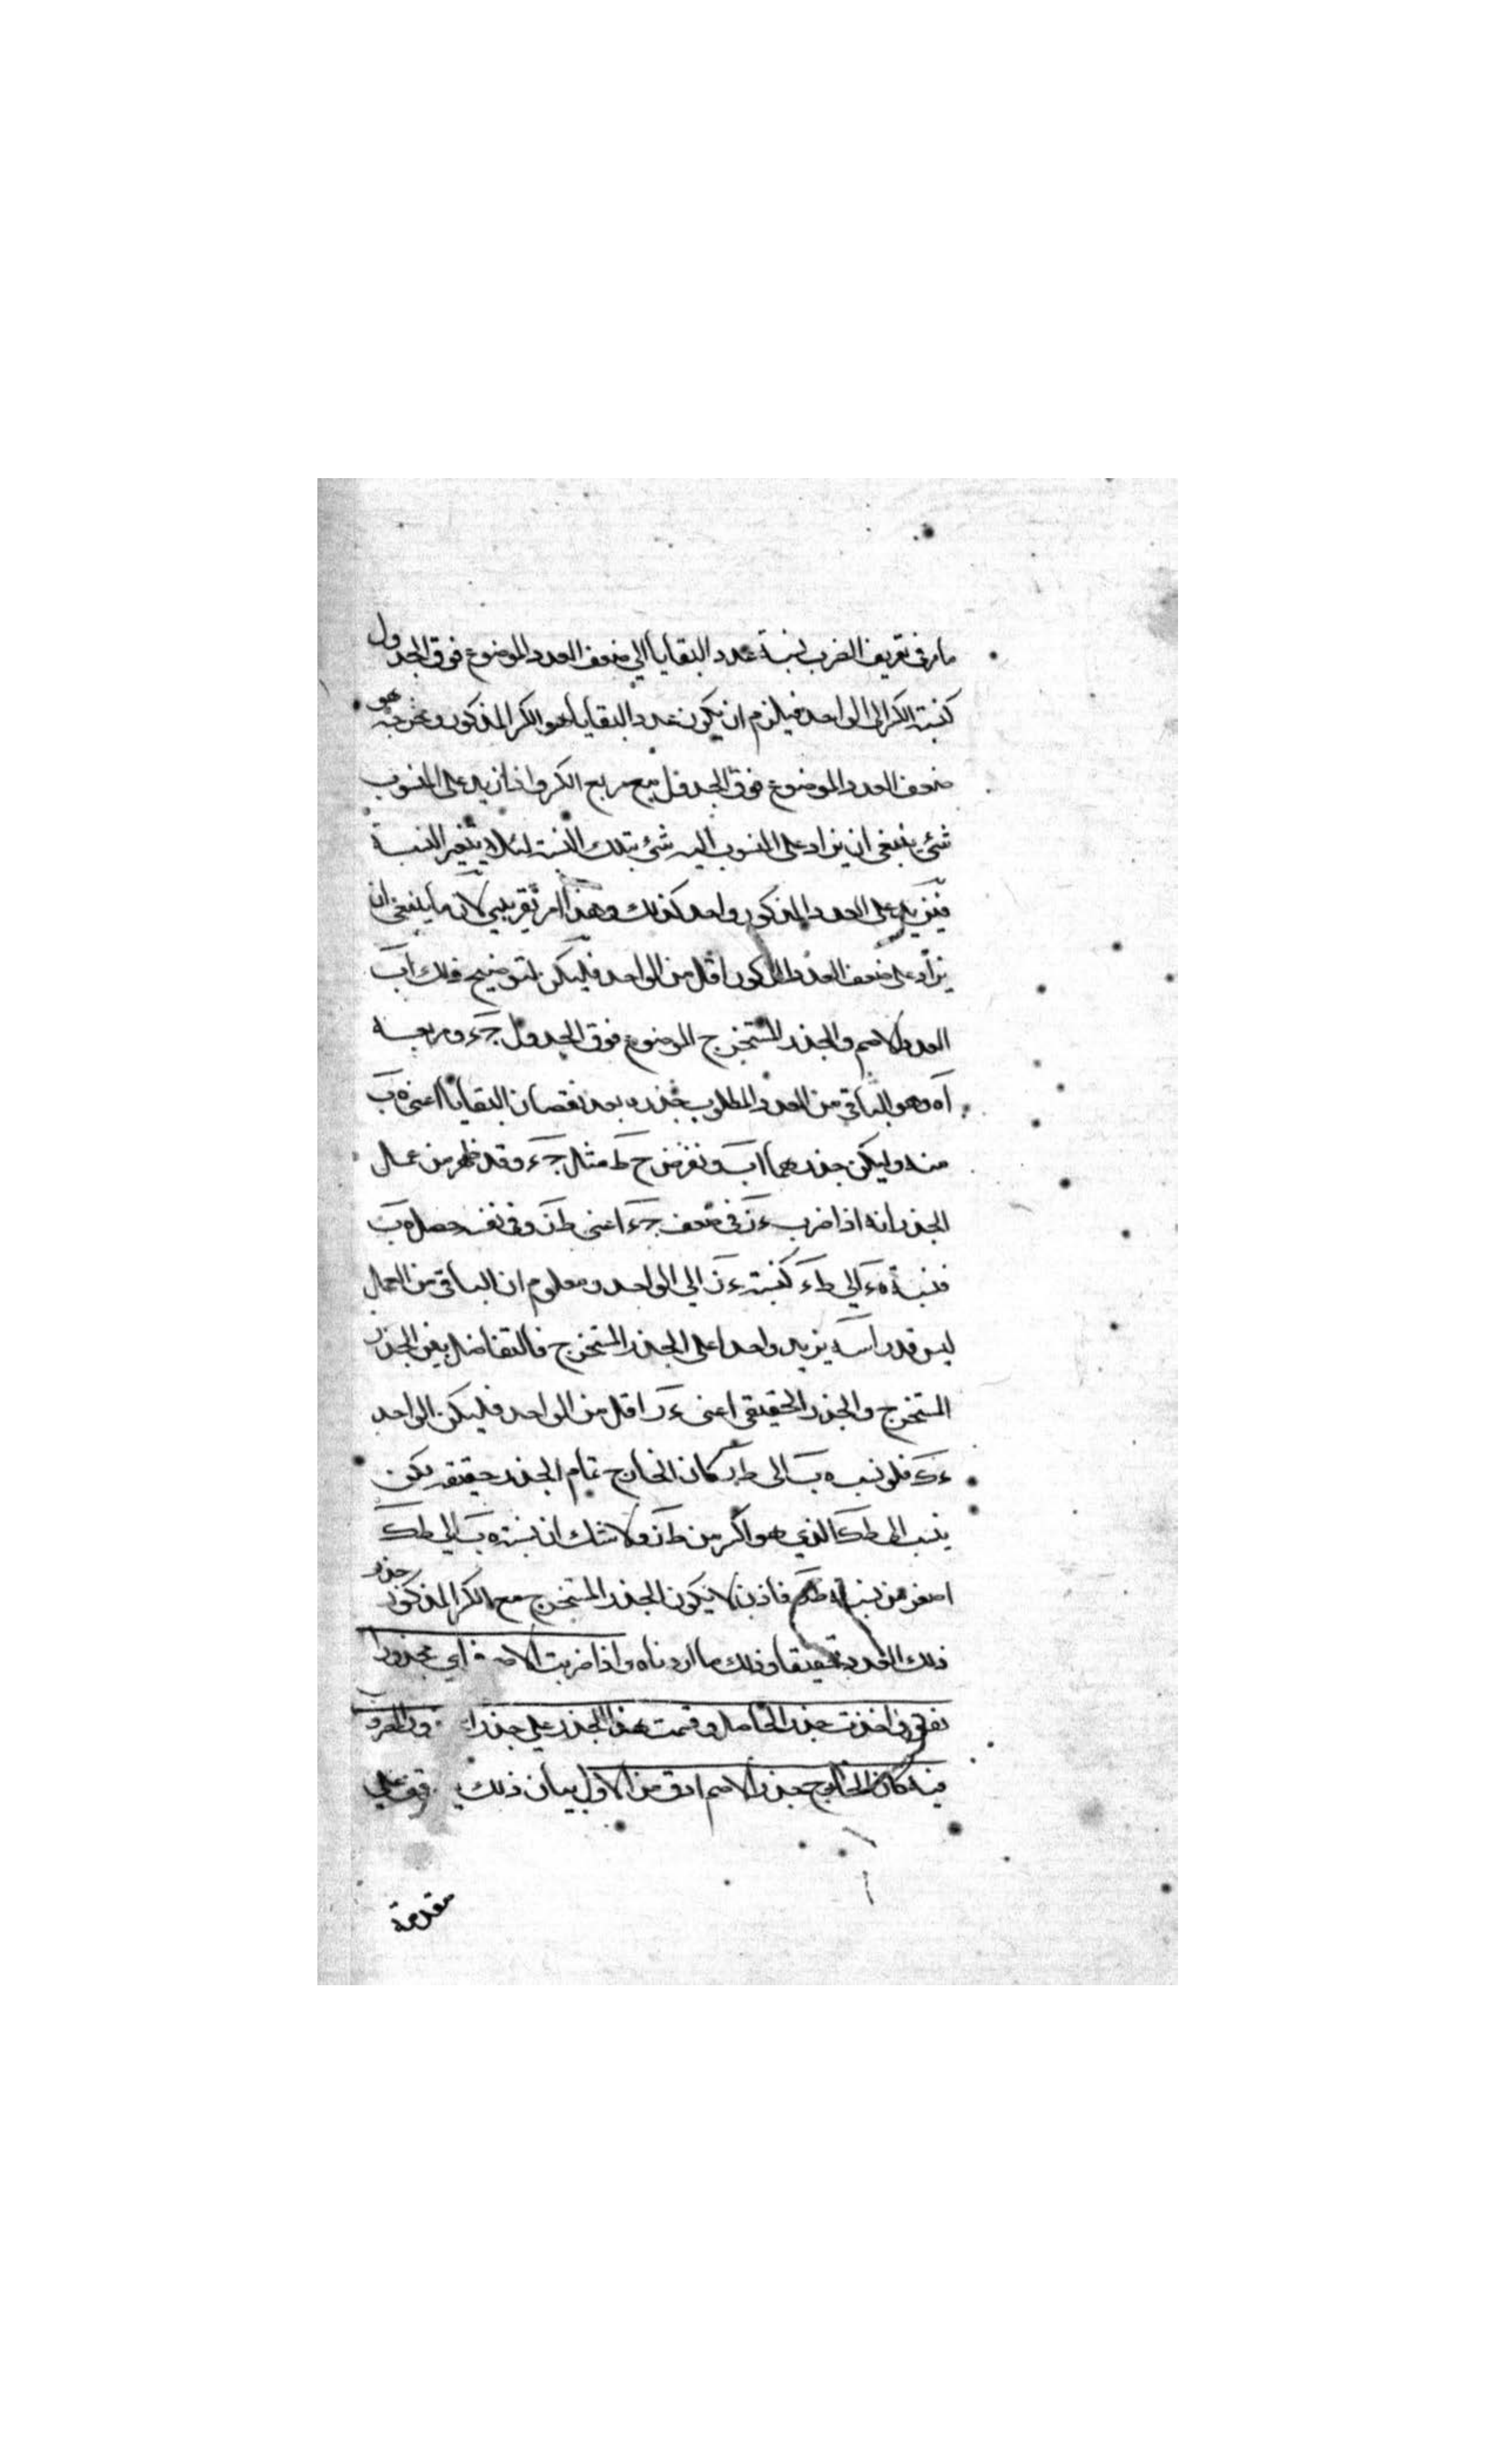 مار في تعريف الضرب نسبة عدد البقايا الي ضعف العدد الموضوع فوق الجدول
كنسبة الكسر الى الواحد فيلزم ان يكون عدد البقايا هو الكسر المذكور ومخرجه هو
ضعف العدد الموضوع فوق الجدول مع مربع الكسر واذا زيد على المنسوب
شئ ينبغي ان يزاد على المنسوب اليه شئ بتلك النسبة لئلا يتغير النسبة
فنزيد على العدد المذكور واحد كذلك وهذا امر تقريبي لان ما ينبغي ان
يزاد على ضعف العدد المذكور اقل من الواحد فليكن لتوضيح ذلك اب
العدد الاصم والجذر المستخرج الموضوع فوق الجدول جء ومربعه
اه وهو الباقي من العدد المطلوب جذره بعد نقصان البقايا اعني ه ب
منه وليكن جذرهما اب ونفرض ح ط مثل جء وقد ظهر من عمل
الجذر انه اذا ضرب ءز في ضعف جء اعني طز وفي نفسه حصل ه ب
فنسبة ه ب الي طء كنسبة ءز الي الواحد ومعلوم ان الباقي من العمل
ليس قدر اسه يزيد واحدا على الجذر المستخرج فالتفاضل بين الجذر
المستخرج والجذر الحقيقي اعني ءز اقل من الواحد فليكن الواحد
ءك فلو نسب ه ب الى طز كان الخارج تمام الجذر حقيقة لكن
ينسب الى طك الذي هو اكبر من طز ولا شك ان نسبة ه ب الي طك
اصغر من نسبته فاذن لا يكون الجذر المستخرج مع الكسر المذكور جذر
ذلك العدد تحقيقا وذلك ما اردناه واذا ضربت الاصم في اي مجذور
واخذت جذر الحاصل وقسمت هذا الجذر على جذر
فيه كان الخارج جذر الاصم ادق من الاول بيان ذلك
مقدمة